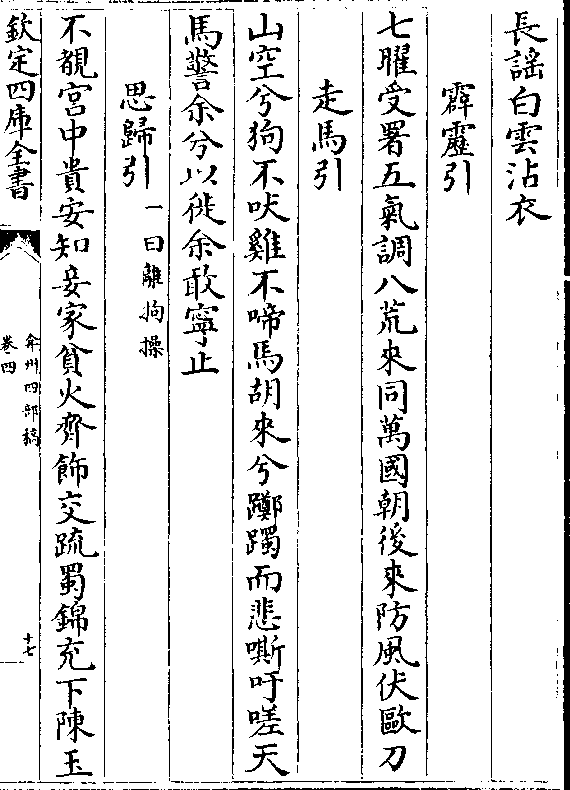 長謡白雲沾衣
霹靂引
七曜受署五氣調八荒來同萬國朝後來防風伏歐刀
走馬引
山空兮狗不吠雞不啼馬胡來兮躑躅而悲嘶吁嗟天
馬警余兮以徙余敢寧止
思歸引一曰離拘操
不覩宫中貴安知妾家貧火齊飾交疏蜀錦充下陳玉
欽定四庫全書
弇州四部稿
卷四
十七